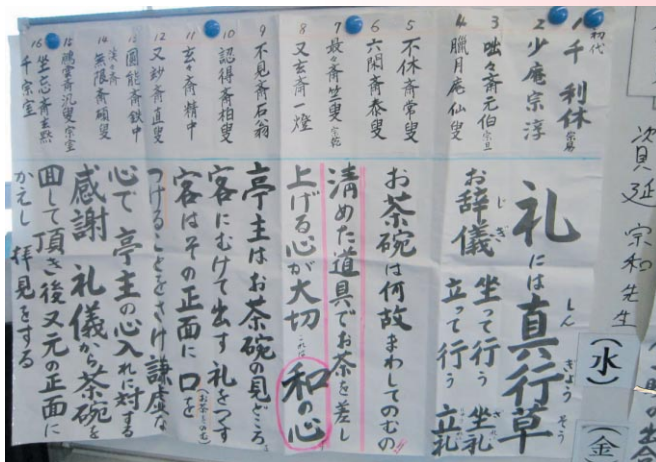 初代
1 千 利休 宗易
2 少庵宗淳
3 咄々斎元伯 宗旦
4 臘月庵仙叟
5 不休斎常叟
6 六閑斎泰叟
7 最々斎竺叟 宗乾
8 又玄斎一燈
9 不見斎石翁
10 認得斎柏叟
11 玄々斎精中
12 又玅斎直叟
13 圓能斎鉄中
14 淡々斎 無限斎碩叟
15 鵬雲斎汎叟宗室
16 坐忘斎玄黙
千宗室
礼には真行草
しん ぎょう そう
お辞儀 坐って行う 坐礼
じぎ ざ
立って行う 立礼
お茶碗は何故まわしてのむの
清めた道具でお茶を差し
上げる心が大切 これは 和の心
亭主はお茶碗の見どころ
客にむけて出す礼をつす
客はその正面に口を
(お茶をのむ)
つけることをさけ謙虚な
心で亭主の心入れに対する
感謝 礼儀から茶碗を
回して頂き後又元の正面に
かえし 拝見をする
資延 宗和先生
(水)
(金)
の出合